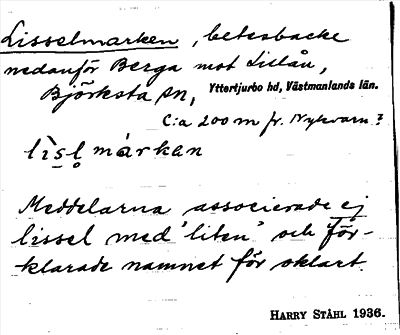 Lisselmarken, betesbacke
nedanför Berga mot Lillån,
Björksta sn, Yttertjurbo hd, Västmanlands län.
C:a 200 m fr. Nykvarn?
lìsl̥ márkan
Meddelarna associerade ej
lissel med 'liten' och för-
klarade namnet för oklart.
HARRY STÅHL 1936.